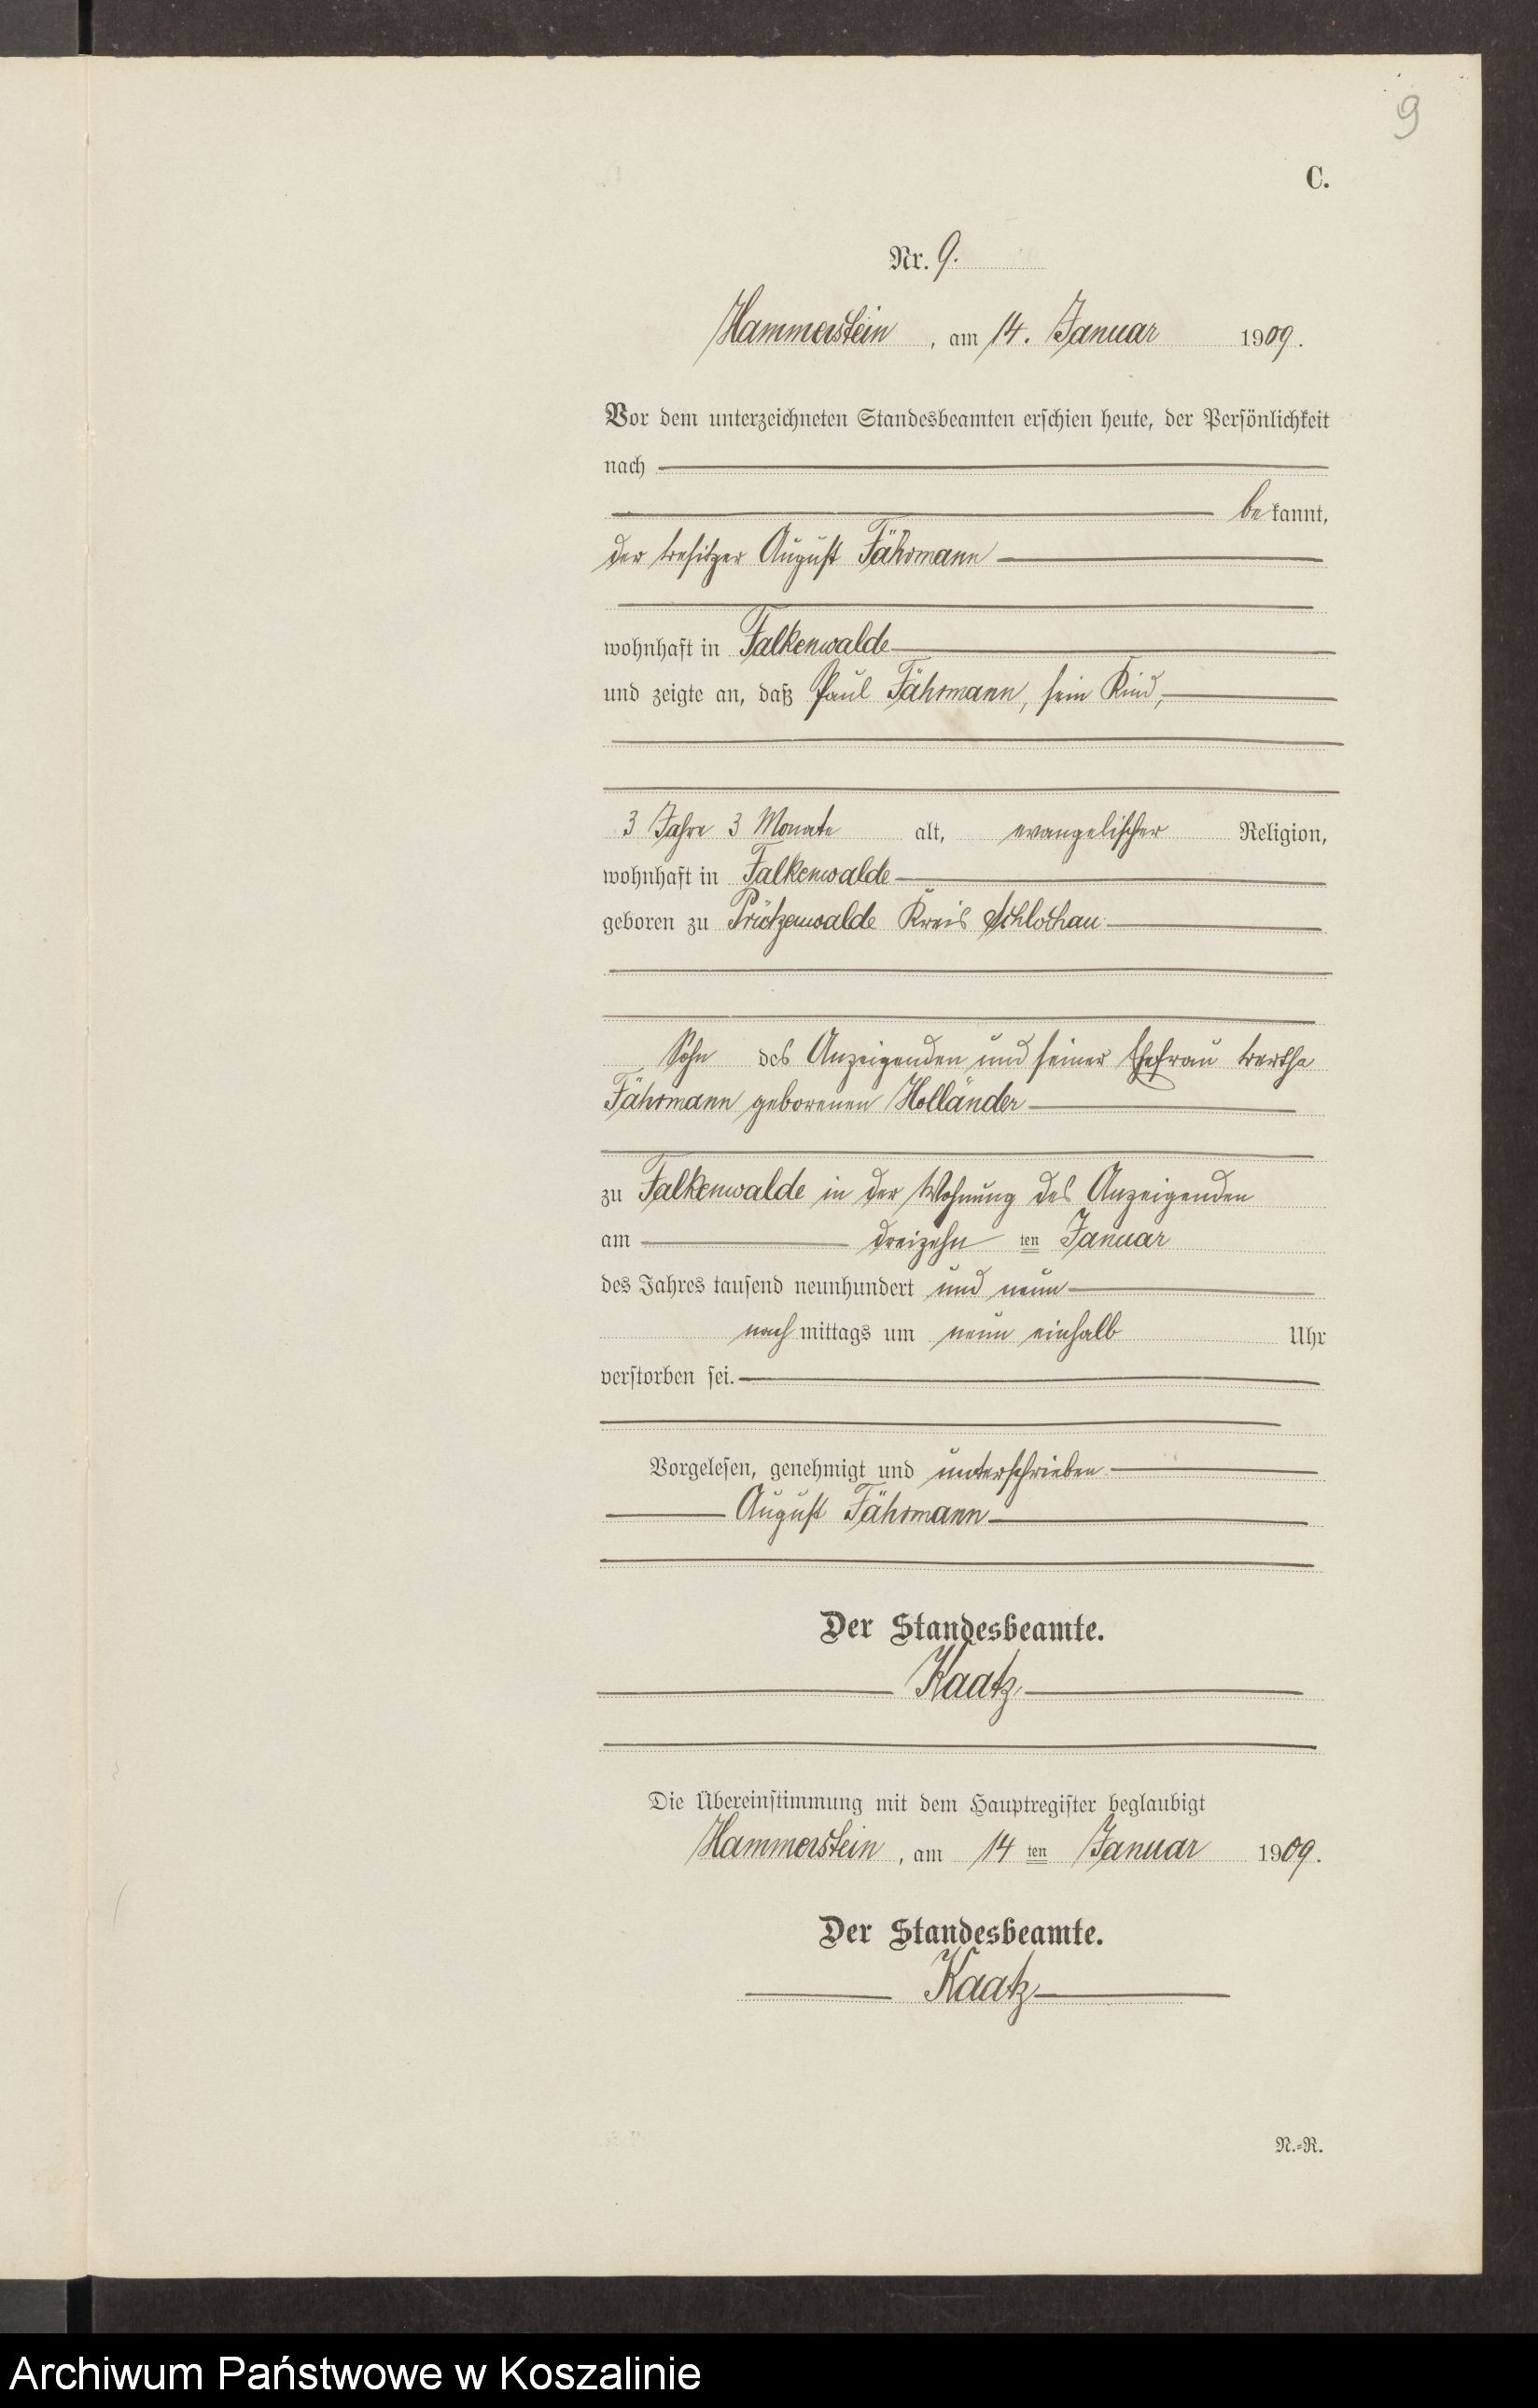 9
C.
Nr. 9.
Hammerstein, am 14. Januar 1909.
Vor dem unterzeichneten Standesbeamten erschien heute, der Persönlichkeit
nach
bekannt,
der Besitzer August Fährmann
wohnhaft in Falkenwalde
und zeigte an, daß Paul Fährmann, sein Kind,
3 Jahre 3 Monate alt, evangelischer Religion,
wohnhaft in Falkenwalde
geboren zu Prützenwalde Kreis Schlochau
Sohn des Anzeigenden und seiner Ehefrau Bertha
Fährmann geborenen Holländer
zu Falkenwalde in der Wohnung des Anzeigenden
am dreizehn ten Januar
des Jahres tausend neunhundert und neun
nachmittags um neun einhalb Uhr
verstorben sei.
Vorgelesen, genehmigt und unterschrieben
August Fährmann
Der Standesbeamte.
Kaatz
Die Übereinstimmung mit dem Hauptregister beglaubigt
Hammerstein, am 14 ten Januar 1909.
Der Standesbeamte.
Kaatz
N.-R.
Archiwum Państwowe w Koszalinie